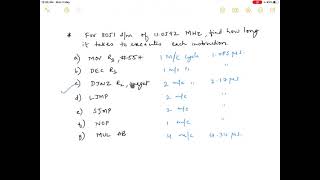 * For 8051 s/m of 11.0592 MHz, find how long
it takes to execute each instruction.
a) MOV R3, #55H 1 M/C cycle 1.085 μs.
b) DEC R3 1 m/c "
c) DJNZ R2, target 2 m/c " 2.17 μs.
d) LJMP 2 m/c "
e) SJMP 2 m/c "
f) NOP 1 m/c "
g) MUL AB 4 m/c 4.34 μs.